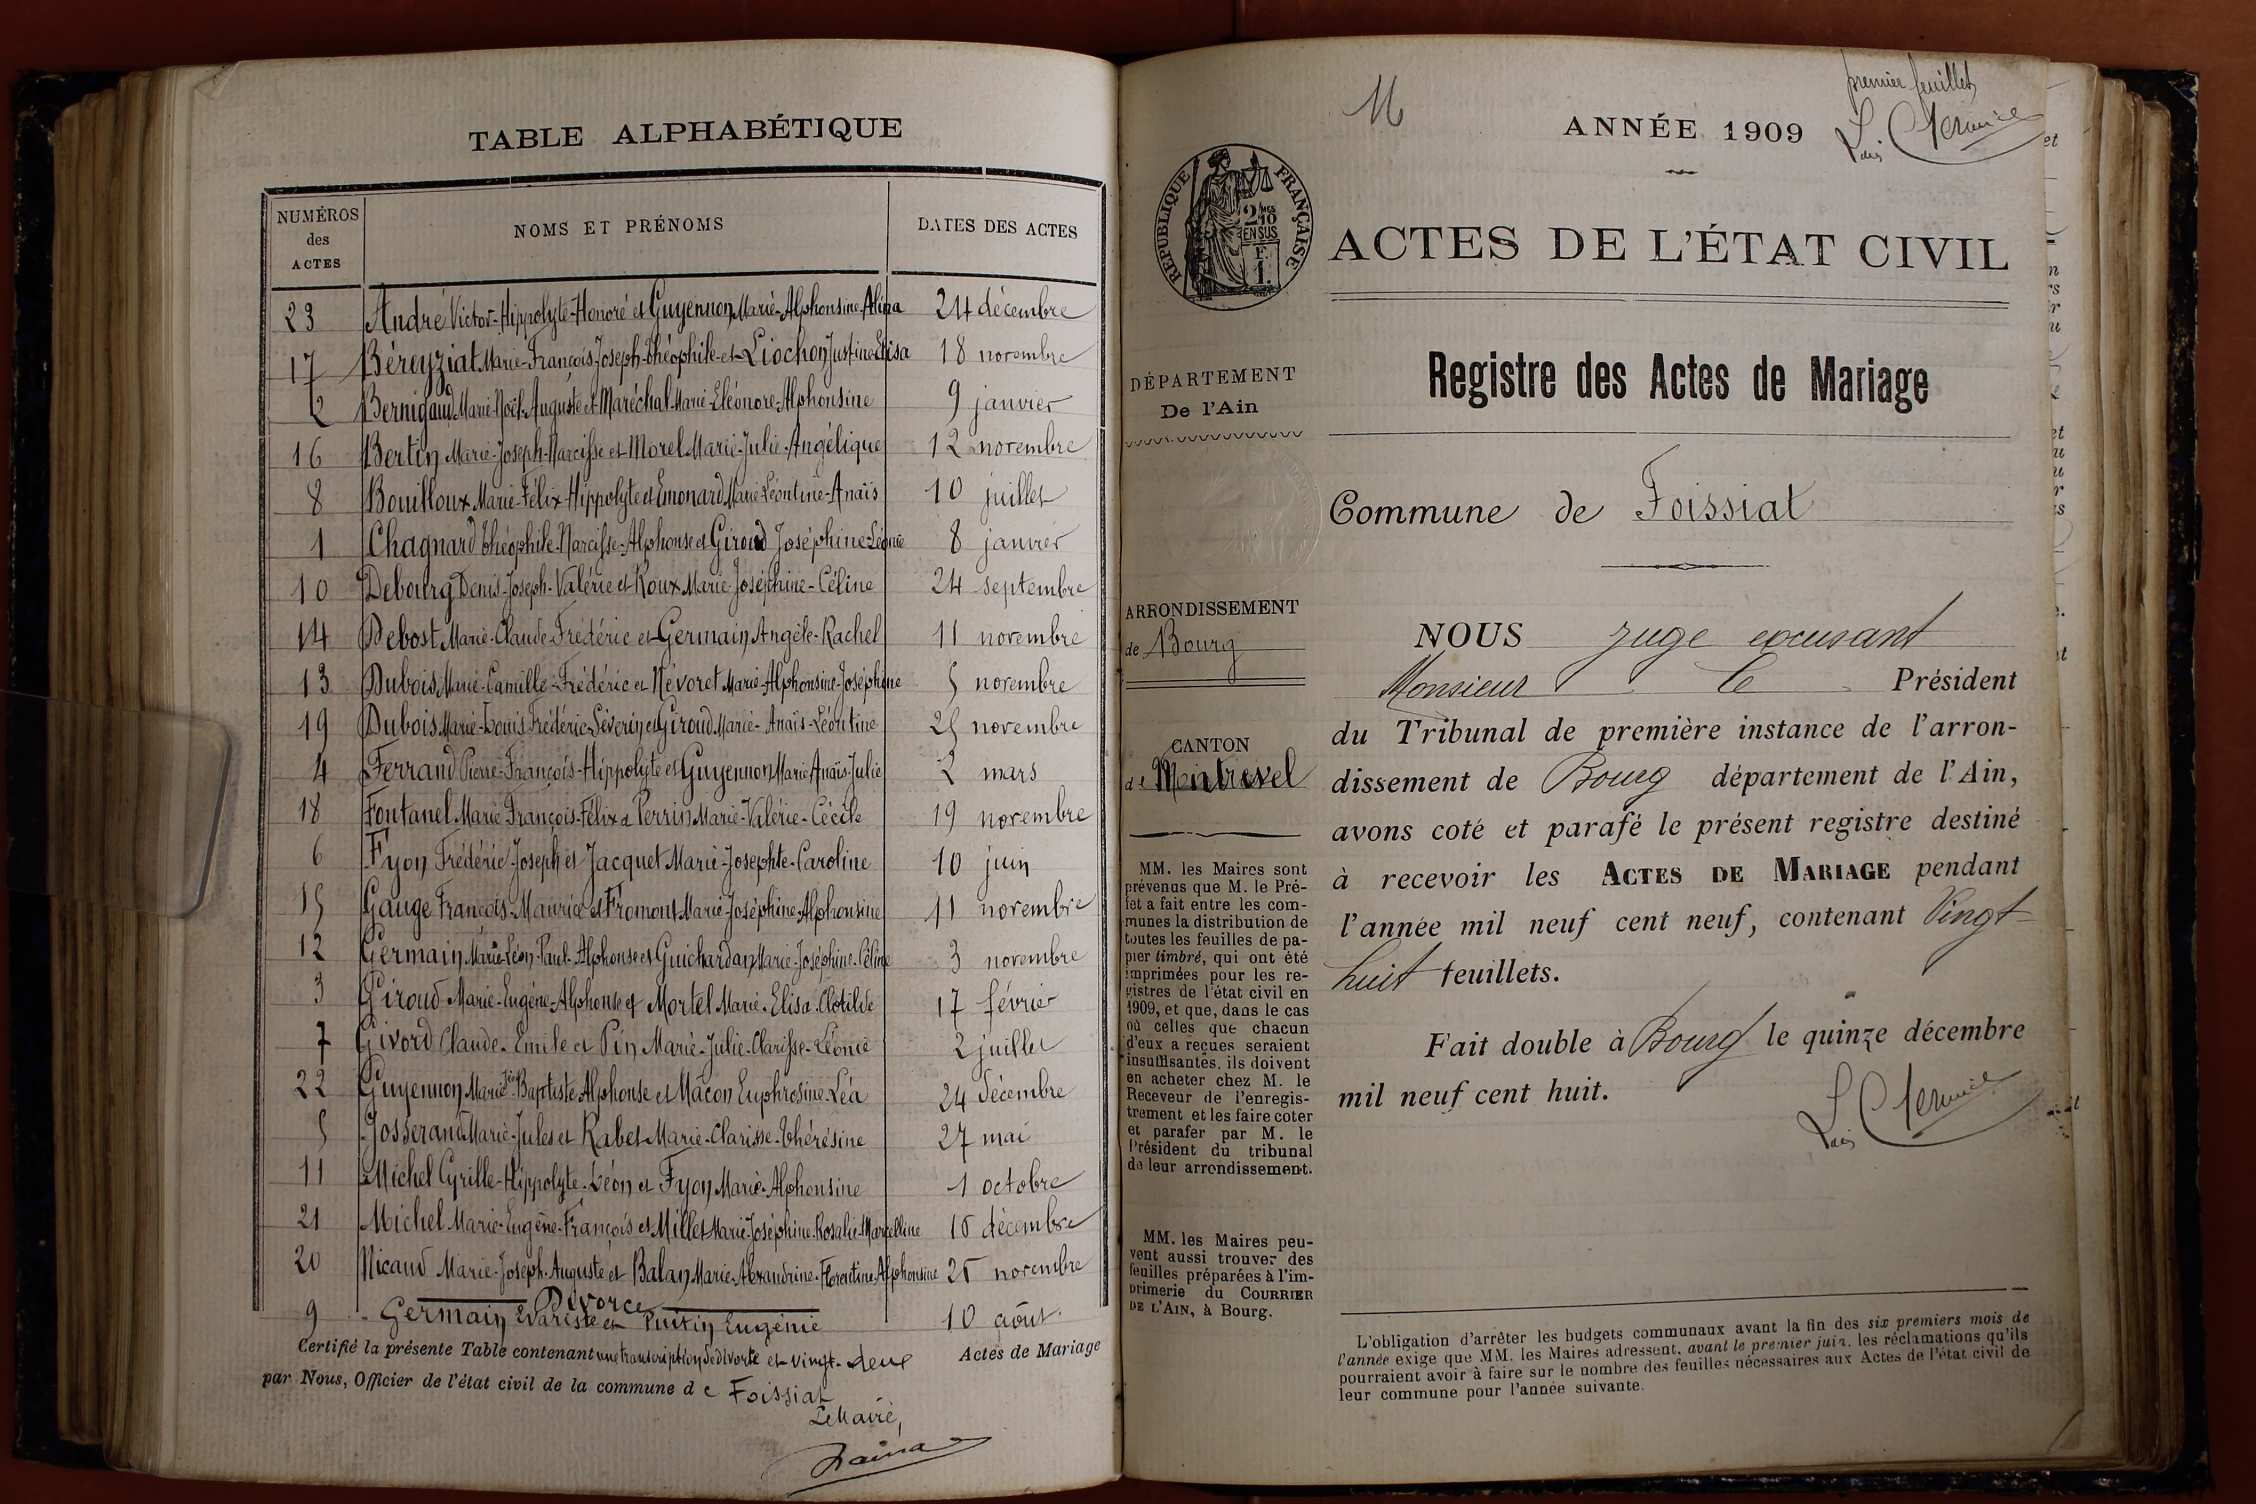 TABLE ALPHABÉTIQUE
NUMÉROS des ACTES
NOMS ET PRÉNOMS
DATES DES ACTES
23 André Victor-Hippolyte-Honoré et Guyennon Marie-Alphonsine-Alina 24 décembre
17 Béreyziat Marie-François-Joseph-Théophile et Liochon Justine Elisa 18 novembre
2 Bernigaud Marie-Noël-Auguste et Maréchal Marie-Eléonore-Alphonsine 9 janvier
16 Bertin Marie-Joseph-Narcisse et Morel Marie-Julie-Angélique 12 novembre
8 Bouilloux Marie-Félix-Hippolyte et Emonard Marie Léontine-Anaïs 10 juillet
1 Chagnard Théophile-Narcisse-Alphonse et Giroud Joséphine-Léonie 8 janvier
10 Debourg Denis-Joseph-Valérie et Roux Marie-Joséphine-Céline 24 septembre
14 Debost Marie-Claude-Frédéric et Germain Angèle-Rachel 11 novembre
13 Dubois Marie-Camille-Frédéric et Névoret Marie-Alphonsine-Joséphine 5 novembre
19 Dubois Marie-Louis Frédéric-Séverin et Giroud Marie-Anaïs-Léontine 25 novembre
4 Ferrand Pierre-François-Hippolyte et Guyennon Marie Anaïs-Julie 2 mars
18 Fontanel Marie François-Félix et Perrin Marie-Valérie-Cécile 19 novembre
6 Fyon Frédéric-Joseph et Jacquet Marie-Josephte-Caroline 10 juin
15 Gauge François-Maurice et Fromont Marie-Joséphine-Alphonsine 11 novembre
12 Germain Marie-Léon-Paul-Alphonse et Guichardan Marie-Joséphine-Céline 3 novembre
3 Giroud Marie-Eugène-Alphonse et Mortel Marie-Elisa-Clotilde 17 février
7 Givord Claude-Emile et Pin Marie-Julie-Clarisse-Léonie 2 juillet
22 Guyennon Marie Jean Baptiste Alphonse et Mâcon Euphrosine-Léa 24 décembre
5 Josserand Marie-Jules et Rabet Marie-Clarisse-Thérésine 27 mai
11 Michel Cyrille-Hippolyte-Léon et Fyon Marie-Alphonsine 1 octobre
21 Michel Marie-Eugène-François et Millet Marie-Joséphine-Rosalie-Marcelline 16 décembre
20 Nicaud Marie-Joseph-Auguste et Balan Marie-Alexandrine-Florentine-Alphonsine 25 novembre
Divorce
9 Germain Evariste et Eugénie 10 août
Certifié la présente Table contenant une transcription de divorce et vingt-deux Actes de Mariage
par Nous, Officier de l'état civil de la commune de Foissiat
Le Maire,
M
premier feuillet
ANNÉE 1909
RÉPUBLIQUE FRANÇAISE
2/10 MES EN SUS
ACTES DE L'ÉTAT CIVIL
DÉPARTEMENT
De l'Ain
Registre des Actes de Mariage
Commune de Foissiat
ARRONDISSEMENT
de Bourg
CANTON
de Montrevel
MM. les Maires sont
prévenus que M. le Pré-
fet a fait entre les com-
munes la distribution de
toutes les feuilles de pa-
pier timbré, qui ont été
imprimées pour les re-
gistres de l'état civil en
1909, et que, dans le cas
où celles que chacun
d'eux a reçues seraient
insuffisantes, ils doivent
en acheter chez M. le
Receveur de l'enregis-
trement et les faire coter
et parafer par M. le
Président du tribunal
de leur arrondissement.
MM. les Maires peu-
vent aussi trouver des
feuilles préparées à l'im-
primerie du COURRIER
DE L'AIN, à Bourg.
NOUS juge excusant
Monsieur le Président
du Tribunal de première instance de l'arron-
dissement de Bourg département de l'Ain,
avons coté et parafé le présent registre destiné
à recevoir les ACTES DE MARIAGE pendant
l'année mil neuf cent neuf, contenant Vingt
huit feuillets.
Fait double à Bourg le quinze décembre
mil neuf cent huit.
L'obligation d'arrêter les budgets communaux avant la fin des six premiers mois de
l'année exige que MM. les Maires adressent, avant le premier juin, les réclamations qu'ils
pourraient avoir à faire sur le nombre des feuilles nécessaires aux Actes de l'état civil de
leur commune pour l'année suivante.